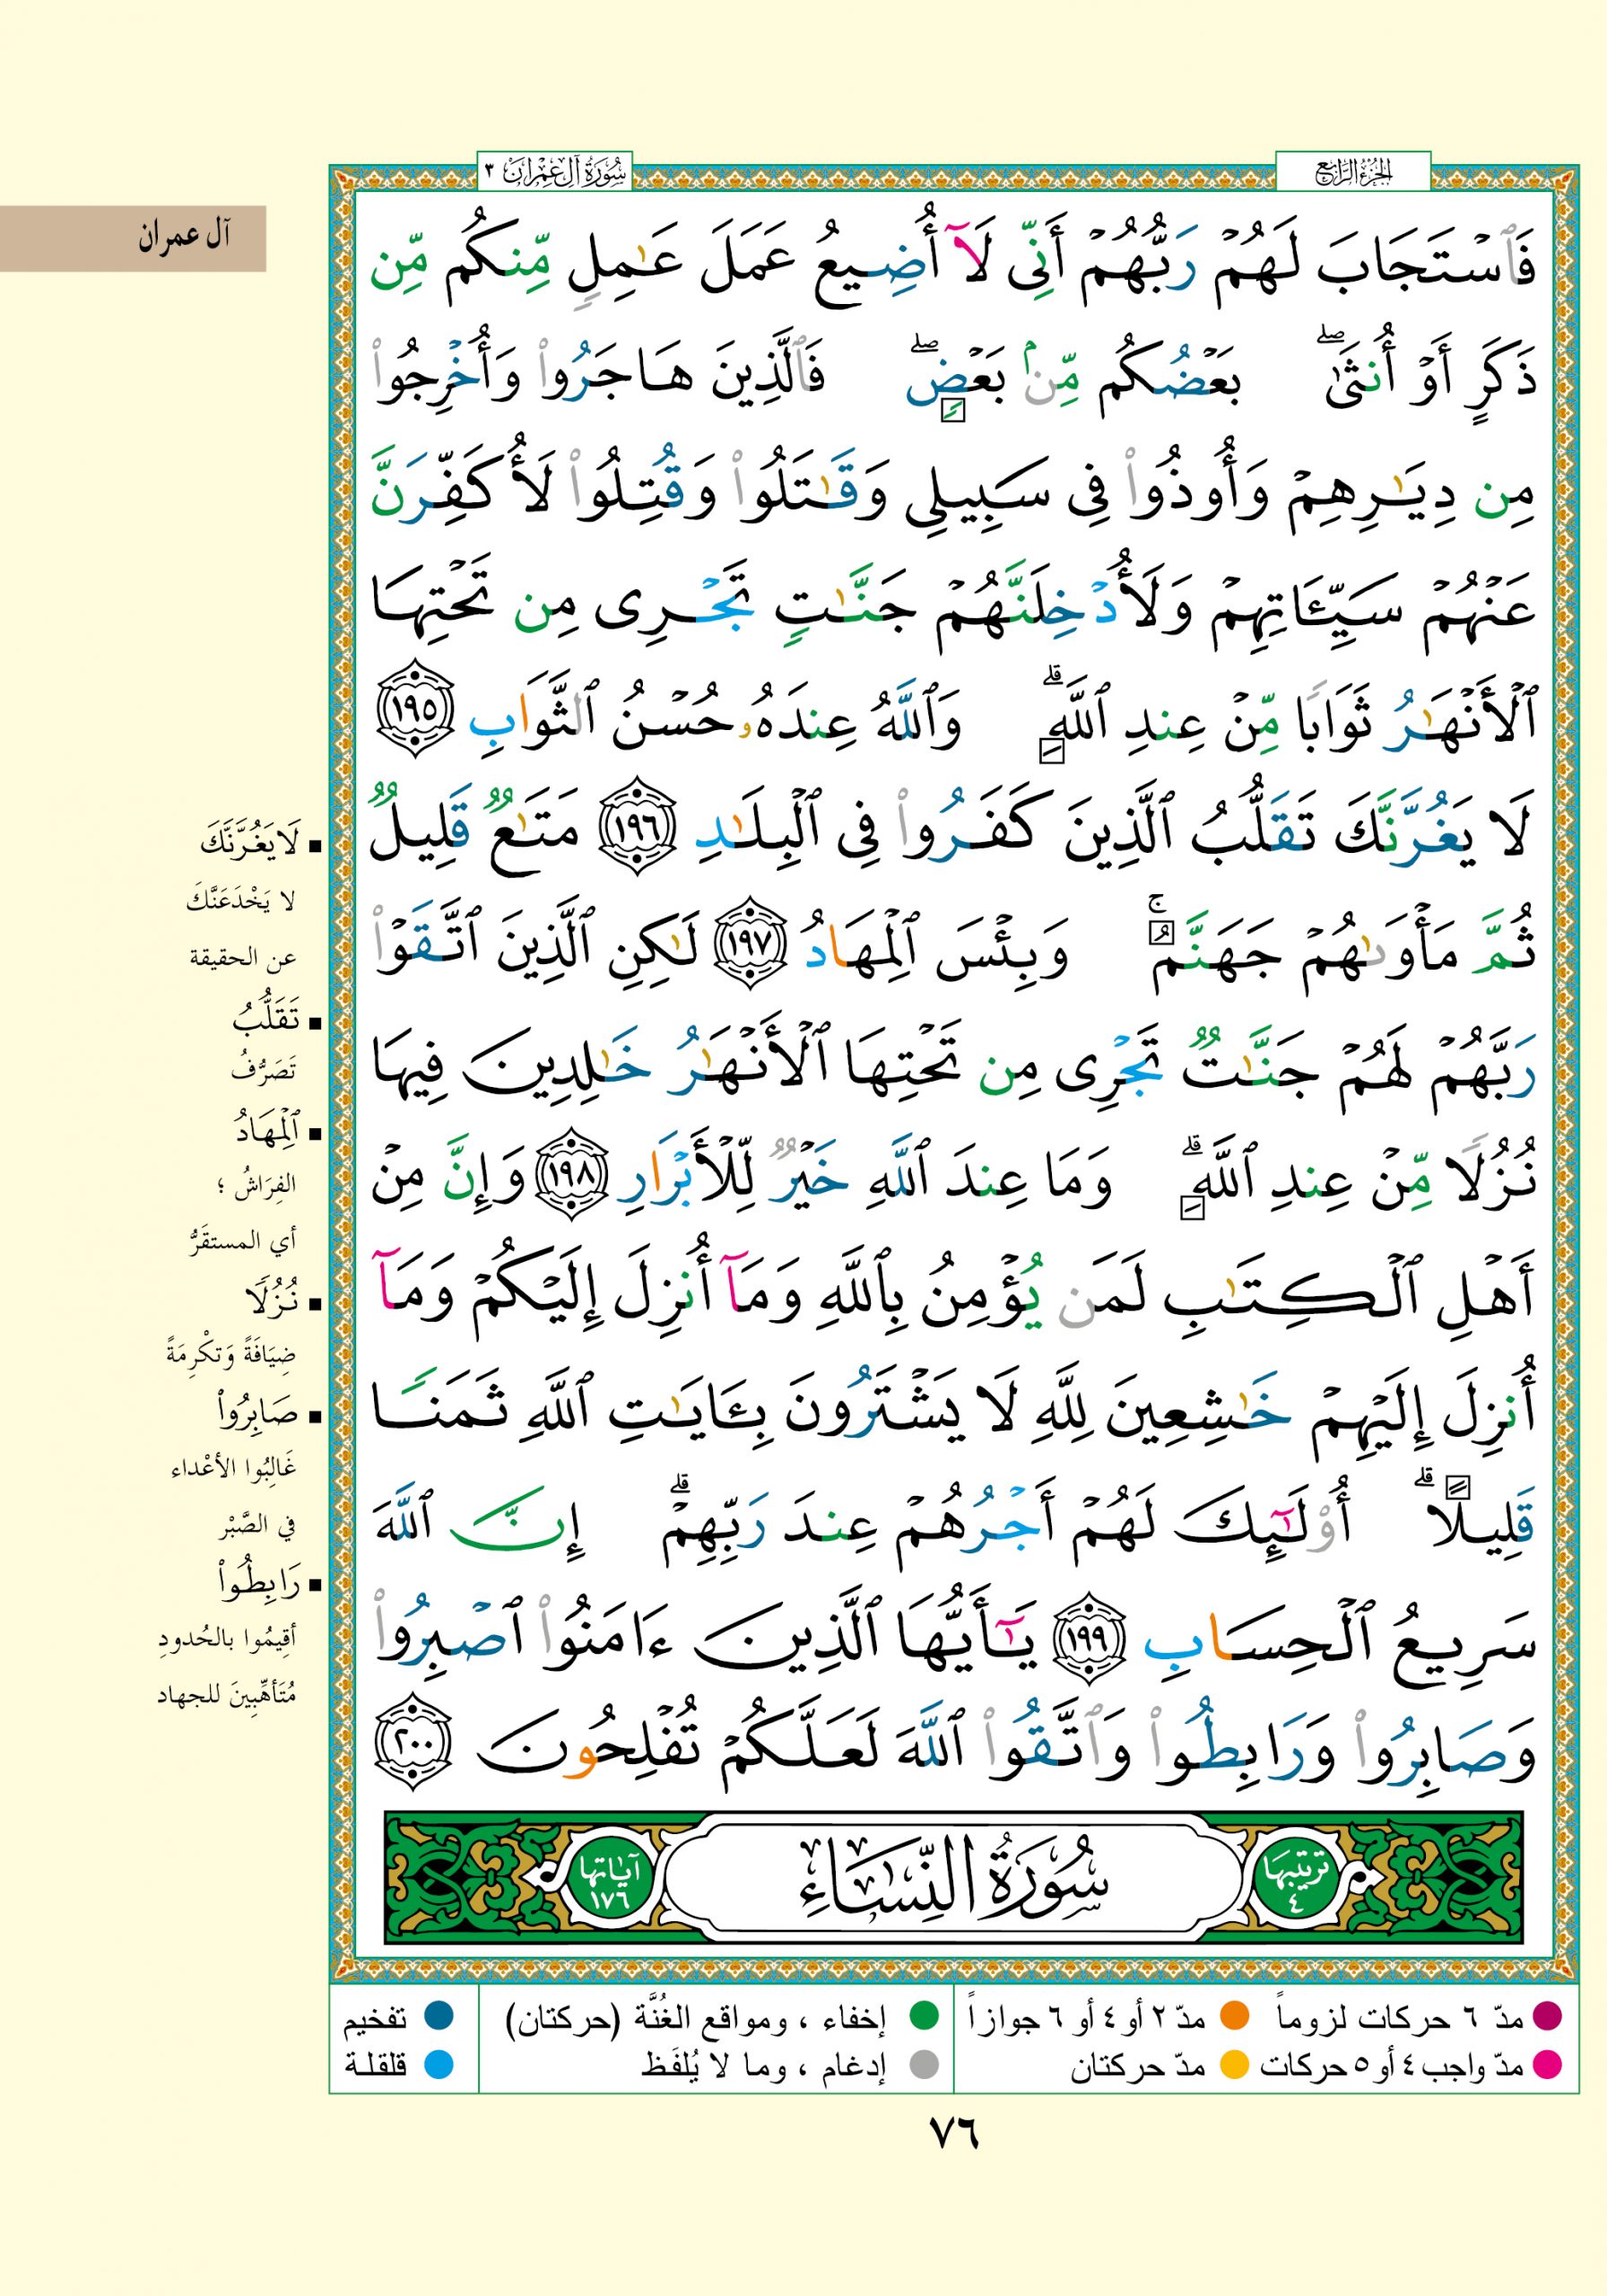 الجزء الرابع
سورة آل عمران ٣
آل عمران
فَٱسۡتَجَابَ لَهُمۡ رَبُّهُمۡ أَنِّي لَآ أُضِيعُ عَمَلَ عَٰمِلٖ مِّنكُم مِّن
ذَكَرٍ أَوۡ أُنثَىٰۖ بَعۡضُكُم مِّنۢ بَعۡضٖۖ فَٱلَّذِينَ هَاجَرُواْ وَأُخۡرِجُواْ
مِن دِيَٰرِهِمۡ وَأُوذُواْ فِي سَبِيلِي وَقَٰتَلُواْ وَقُتِلُواْ لَأُكَفِّرَنَّ
عَنۡهُمۡ سَيِّـَٔاتِهِمۡ وَلَأُدۡخِلَنَّهُمۡ جَنَّٰتٖ تَجۡرِي مِن تَحۡتِهَا
ٱلۡأَنۡهَٰرُ ثَوَابٗا مِّنۡ عِندِ ٱللَّهِۚ وَٱللَّهُ عِندَهُۥ حُسۡنُ ٱلثَّوَابِ ١٩٥
لَا يَغُرَّنَّكَ تَقَلُّبُ ٱلَّذِينَ كَفَرُواْ فِي ٱلۡبِلَٰدِ ١٩٦ مَتَٰعٞ قَلِيلٞ
ثُمَّ مَأۡوَىٰهُمۡ جَهَنَّمُۚ وَبِئۡسَ ٱلۡمِهَادُ ١٩٧ لَٰكِنِ ٱلَّذِينَ ٱتَّقَوۡاْ
رَبَّهُمۡ لَهُمۡ جَنَّٰتٞ تَجۡرِي مِن تَحۡتِهَا ٱلۡأَنۡهَٰرُ خَٰلِدِينَ فِيهَا
نُزُلٗا مِّنۡ عِندِ ٱللَّهِۗ وَمَا عِندَ ٱللَّهِ خَيۡرٞ لِّلۡأَبۡرَارِ ١٩٨ وَإِنَّ مِنۡ
أَهۡلِ ٱلۡكِتَٰبِ لَمَن يُؤۡمِنُ بِٱللَّهِ وَمَآ أُنزِلَ إِلَيۡكُمۡ وَمَآ
أُنزِلَ إِلَيۡهِمۡ خَٰشِعِينَ لِلَّهِ لَا يَشۡتَرُونَ بِـَٔايَٰتِ ٱللَّهِ ثَمَنٗا
قَلِيلًاۗ أُوْلَٰٓئِكَ لَهُمۡ أَجۡرُهُمۡ عِندَ رَبِّهِمۡۗ إِنَّ ٱللَّهَ
سَرِيعُ ٱلۡحِسَابِ ١٩٩ يَٰٓأَيُّهَا ٱلَّذِينَ ءَامَنُواْ ٱصۡبِرُواْ
وَصَابِرُواْ وَرَابِطُواْ وَٱتَّقُواْ ٱللَّهَ لَعَلَّكُمۡ تُفۡلِحُونَ ٢٠٠
ترتيبها ٤
سُورَةُ النِّسَاءِ
آياتها ١٧٦
لَا يَغُرَّنَّكَ
لا يَخْدَعَنَّكَ
عن الحقيقة
تَقَلُّبُ
تَصَرُّفُ
ٱلۡمِهَادُ
الفِرَاشُ ؛
أي المستقَرُّ
نُزُلًا
ضِيَافَةً وَتكْرِمَةً
صَابِرُواْ
غَالِبُوا الأعْداء
في الصَّبْر
رَابِطُواْ
أقِيمُوا بالحُدودِ
مُتَأهِّبِينَ للجهاد
مدّ ٦ حركات لزوماً
مدّ ٢ أو ٤ أو ٦ جوازاً
مدّ واجب ٤ أو ٥ حركات
مدّ حركتان
إخفاء ، ومواقع الغُنَّة (حركتان)
إدغام ، وما لا يُلفَظ
تفخيم
قلقلة
٧٦